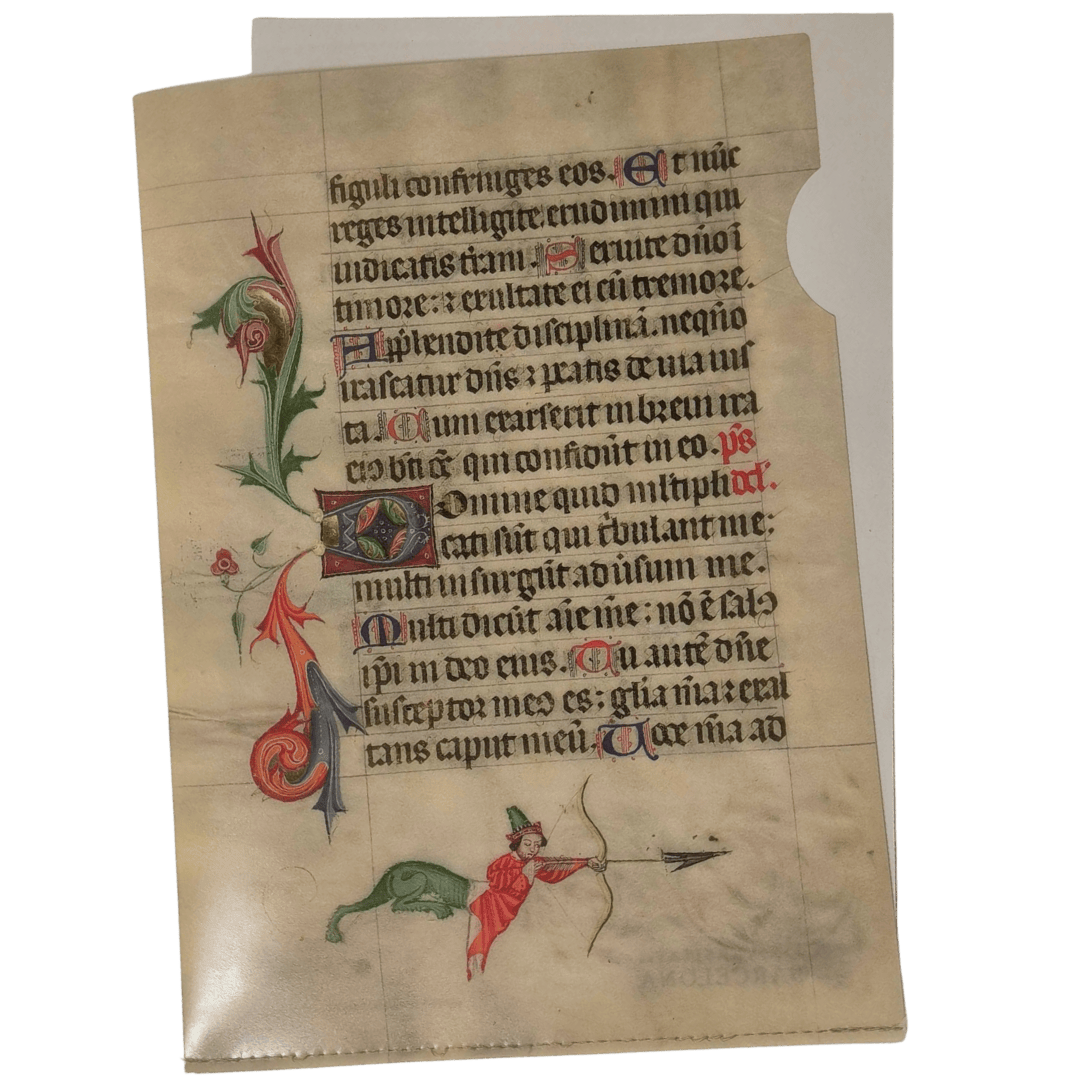 figuli confringes eos. Et nūc
reges intelligite erudimini qui
iudicatis t̄ram. Seruite dn̄o ī
timore: ⁊ exultate ei cū tremore.
App̄hendite disciplinā. neqn̄o
irascatur dn̄s ⁊ p̄eatis de uia ius
ta. Cum exarserit in breui ira
eiꝰ bt̄i oē̄s qui confidūt in eo. ps̄
Domine quid ml̄tipli dd̄.
cati sūt qui t̄bulant me:
multi insurgūt aduīsum me.
Multi dicūt aīe mē: nō ē salꝰ
ip̄i in deo eius. Tu autē dn̄e
susceptor meꝰ es: glīa m̄a ⁊ exal
tans caput meū. Uoce m̄a ad
BARCELONA